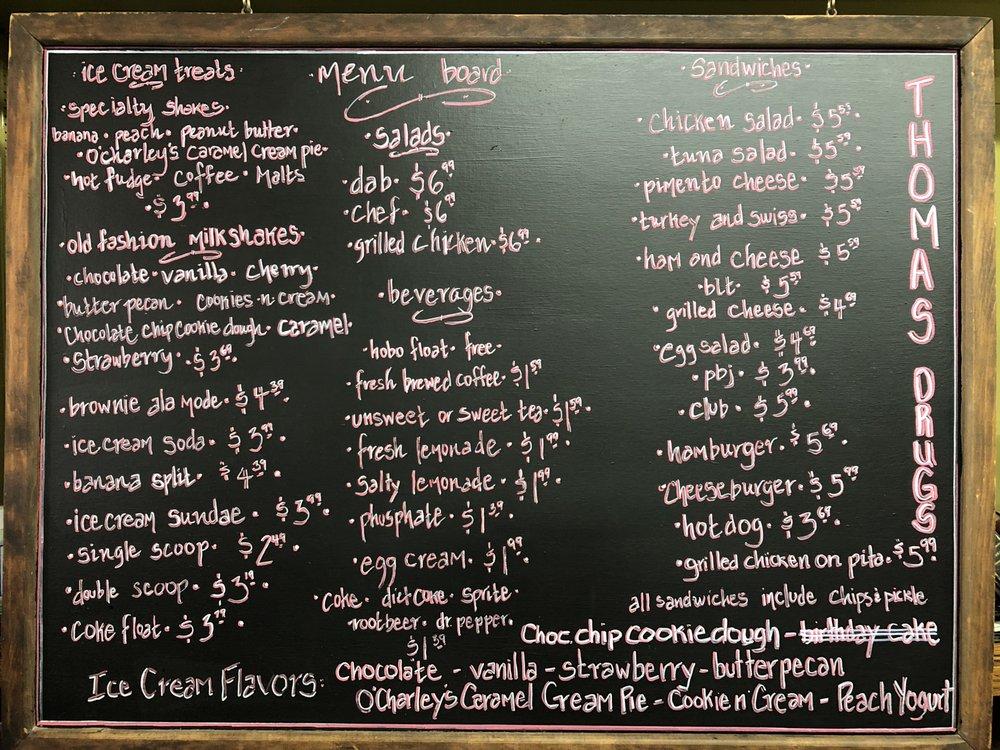 ice cream treats
• specialty shakes •
banana • peach • peanut butter •
• O'Charley's Caramel Cream pie •
• hot fudge • coffee • Malts
• $3.99 •
• old fashion milkshakes •
• chocolate • vanilla • cherry •
butter pecan • cookies-n-cream •
Chocolate chip cookie dough • caramel •
• Strawberry • $3.69 •
• brownie ala mode • $4.39 •
• ice cream soda • $3.99 •
• banana split • $4.39 •
• ice cream sundae • $3.99 •
• single scoop • $2.49 •
• double scoop • $3.19 •
• coke float • $3.79 •
• Menu board •
• Salads •
• dab • $6.99
• chef • $6.99
• grilled chicken • $6.99 •
• beverages •
• hobo float • free •
• fresh brewed coffee • $1.59
• unsweet or sweet tea • $1.59 •
• fresh lemonade • $1.99 •
• Salty lemonade • $1.99 •
• phosphate • $1.39 •
• egg cream • $1.99 •
• coke • diet coke • sprite •
• rootbeer • dr pepper •
$1.39
• Sandwiches •
• Chicken salad • $5.59 •
• tuna salad • $5.59 •
• pimento cheese • $5.59
• turkey and swiss • $5.59
• ham and cheese $5.59
• blt • $5.59
• grilled cheese • $4.69
• egg salad • $4.69
• pbj • $3.99 •
• club • $5.99 •
• hamburger • $5.69 •
• Cheeseburger • $5.99
• hotdog • $3.69 •
• grilled chicken on pita • $5.99
all sandwiches include chips & pickle
THOMAS DRUGS
Choc. chip cookie dough - birthday cake
Ice Cream Flavors: Chocolate - vanilla - strawberry - butterpecan
O'Charley's Caramel Cream Pie - Cookie n' Cream - Peach Yogurt